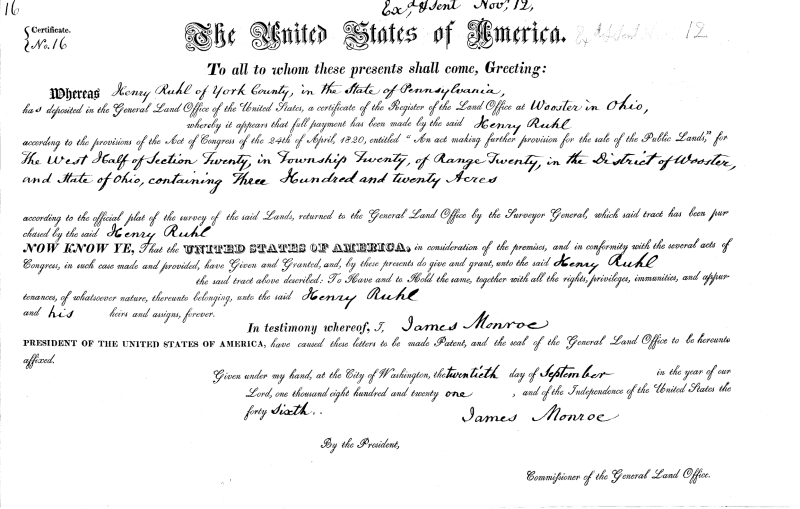 16
Ex,d & Sent Nov, 12,
{Certificate.
{No. 16
The United States of America.
12
To all to whom these presents shall come, Greeting:
Whereas Henry Ruhl of York County, in the State of Pennsylvania,
has deposited in the General Land Office of the United States, a certificate of the Register of the Land Office at Wooster in Ohio,
whereby it appears that full payment has been made by the said Henry Ruhl
according to the provisions of the Act of Congress of the 24th of April, 1820, entitled "An act making further provision for the sale of the Public Lands," for
The West Half of Section Twenty, in Township Twenty, of Range Twenty, in the District of Wooster,
and State of Ohio, containing Three Hundred and twenty Acres
according to the official plat of the survey of the said Lands, returned to the General Land Office by the Surveyor General, which said tract has been pur
chased by the said Henry Ruhl
NOW KNOW YE, That the UNITED STATES OF AMERICA, in consideration of the premises, and in conformity with the several acts of
Congress, in such case made and provided, have Given and Granted, and, by these presents do give and grant, unto the said Henry Ruhl
the said tract above described: To Have and to Hold the same, together with all the rights, privileges, immunities, and appur-
tenances, of whatsoever nature, thereunto belonging, unto the said Henry Ruhl
and his heirs and assigns, forever.
In testimony whereof, I, James Monroe
PRESIDENT OF THE UNITED STATES OF AMERICA, have caused these letters to be made Patent, and the seal of the General Land Office to be hereunto
affixed.
Given under my hand, at the City of Washington, the twentieth day of September in the year of our
Lord, one thousand eight hundred and twenty one , and of the Independence of the United States the
forty Sixth..
James Monroe
By the President,
Commissioner of the General Land Office.